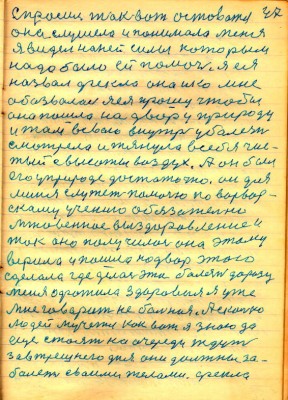 спросили так вот оставать 47
она слушала и понимала меня
я видел на ней силы которым
надо было ей помоч. я ея
назвал фекла она ко мне
обозвалас я ея прошу чтобы
она пошла на двор у природу
и там в свою внутр убалеть
смотрела и тянула в себя чис-
тый с высоты воздух. А он был
его у природе достаточно. он для
служет помочю по
скому учению обязательно
мгновенное выздоровление и
так оно получилос она этому
верила и пошла на двор этого
сделала где делас эта болезь за разу
меня одротила здоровья я уже
мне говарит не больная. А сколко
людей мучется как вот я знаю да
еще стоять на очереди ждут
завтрешнего дня они должны за-
балеть своими телами. фекла